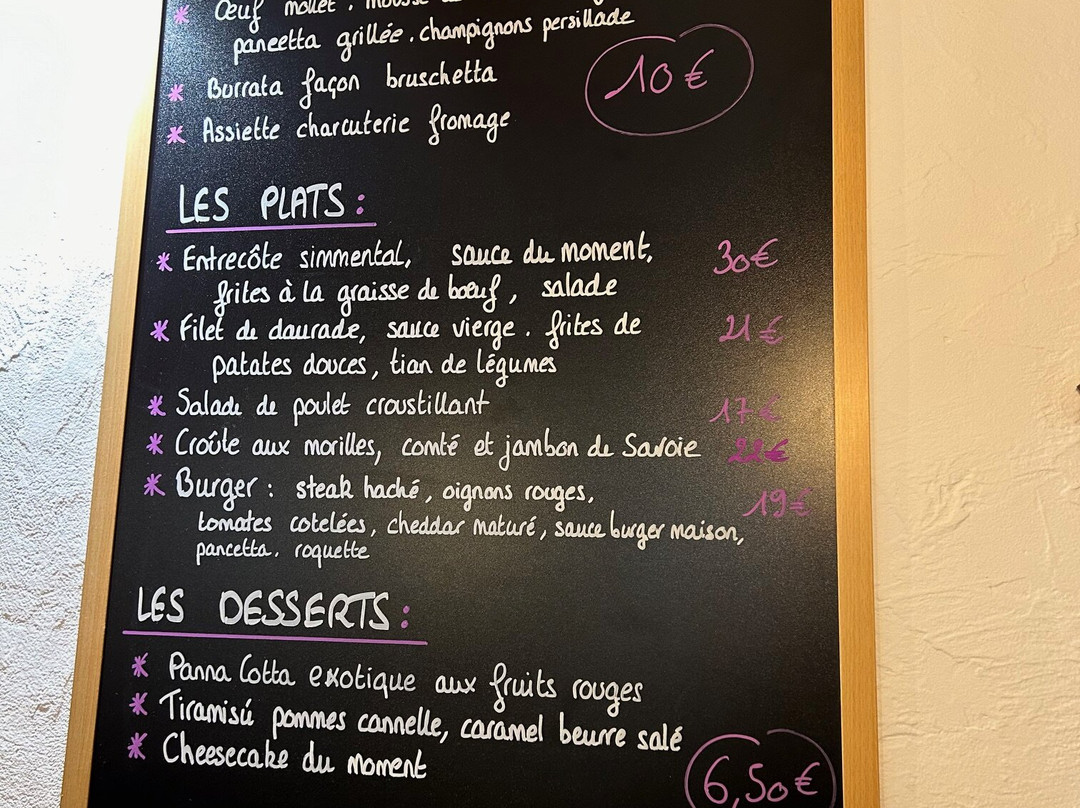 * Œuf mollet, mousse
pancetta grillée, champignons persillade
* Burrata façon bruschetta
* Assiette charcuterie fromage
10€
LES PLATS :
* Entrecôte simmental, sauce du moment, 30€
frites à la graisse de bœuf, salade
* Filet de daurade, sauce vierge, frites de 21€
patates douces, tian de légumes
* Salade de poulet croustillant 17€
* Croûte aux morilles, comté et jambon de Savoie 22€
* Burger : steak haché, oignons rouges, 19€
tomates cotelées, cheddar maturé, sauce burger maison,
pancetta, roquette
LES DESSERTS :
* Panna Cotta exotique aux fruits rouges
* Tiramisú pommes cannelle, caramel beurre salé
* Cheesecake du moment
6,50€